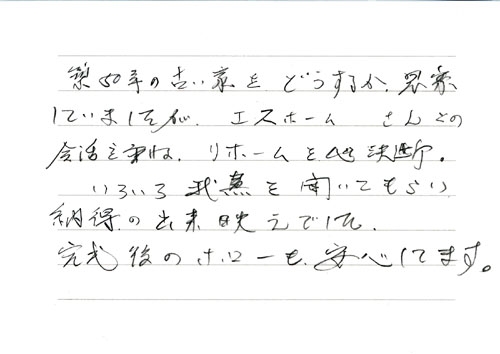 築50年の古い家を どうするか、思案
していましたが、エスホーム さんとの
会話を重ね、リホームを 決断。
いろいろ我儘を聞いてもらい
納得の出来映えでした、
完成後のホローも、安心してます。